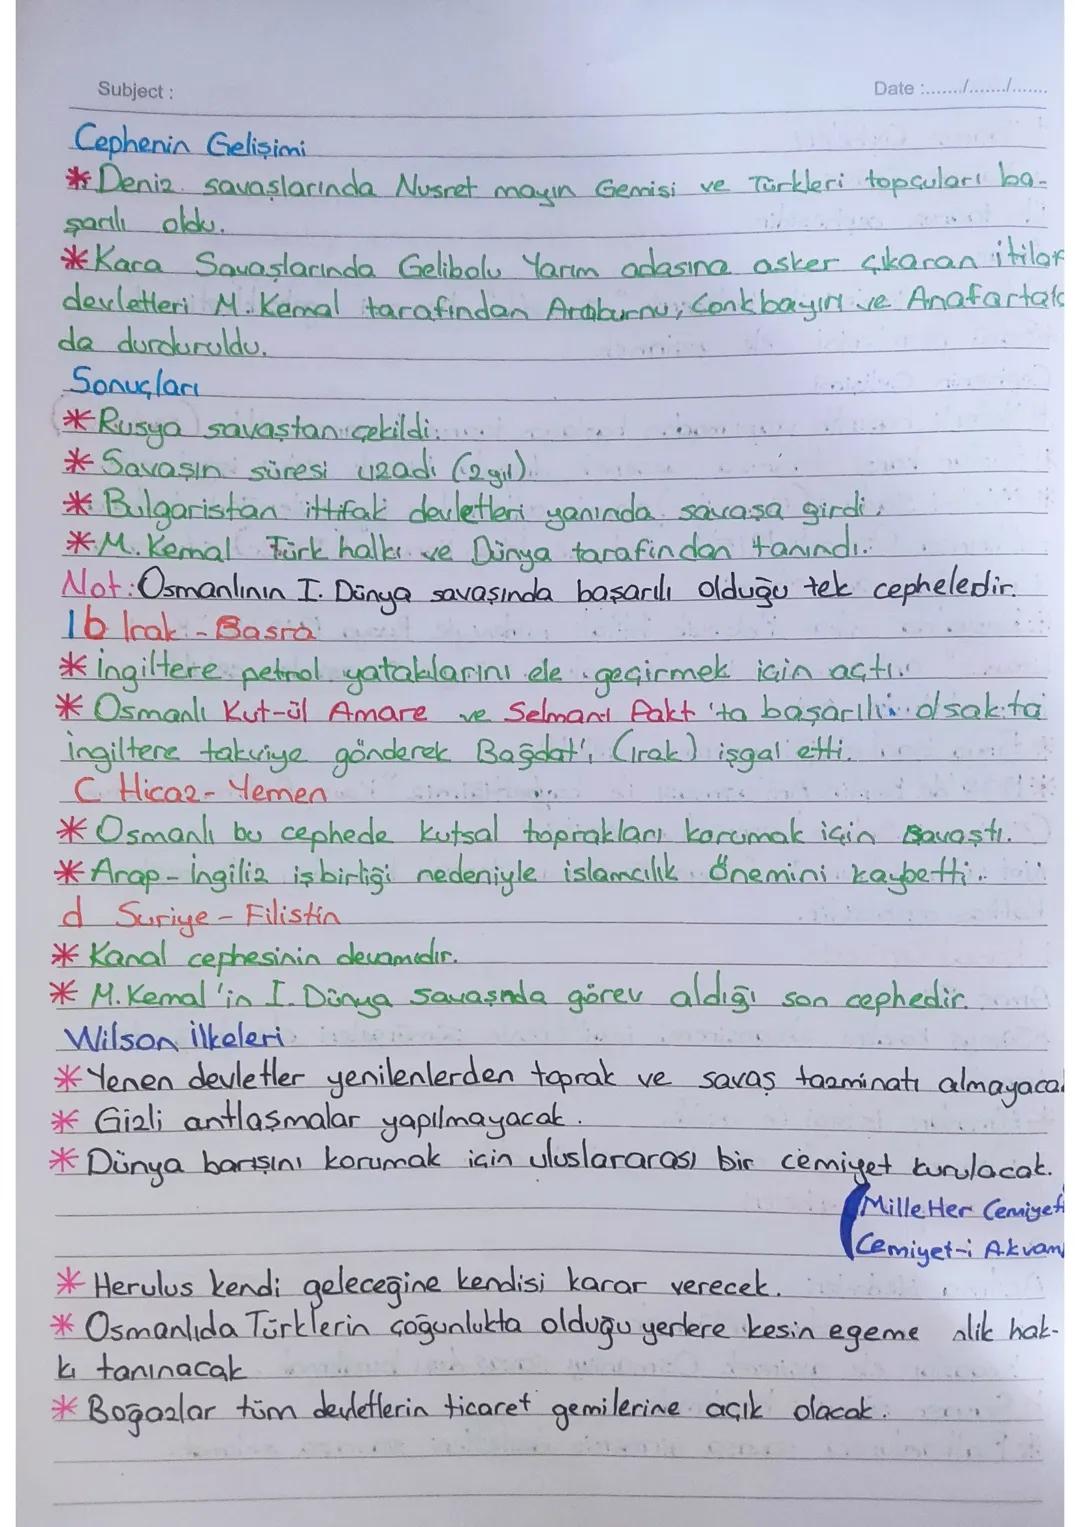 Subject :
Date :......./......./.......
Cephenin Gelişimi
* Deniz savaşlarında Nusret mayın Gemisi ve Türkleri topçuları ba-
şarılı oldu.
* Kara Savaşlarında Gelibolu Yarım adasına asker çıkaran itilaf
devletleri M. Kemal tarafından Arıburnu, Conkbayırı ve Anafartala
da durduruldu.
Sonuçları
* Rusya savaştan çekildi.
* Savaşın süresi uzadı (2 yıl).
* Bulgaristan ittifak devletleri yanında savaşa girdi.
* M. Kemal Türk halkı ve Dünya tarafından tanındı.
Not: Osmanlının I. Dünya savaşında başarılı olduğu tek cephelerdir.
1b Irak - Basra
* İngiltere petrol yataklarını ele geçirmek için açtı.
* Osmanlı Kut-ül Amare ve Selmanı Pakt 'ta başarılı olsakta
İngiltere takviye gönderek Bağdat'ı (ırak) işgal etti.
C Hicaz - Yemen
* Osmanlı bu cephede kutsal toprakları korumak için savaştı.
* Arap - İngiliz işbirliği nedeniyle islamcılık önemini kaybetti.
d Suriye - Filistin
* Kanal cephesinin devamıdır.
* M. Kemal'in I. Dünya savaşında görev aldığı son cephedir.
Wilson İlkeleri
* Yenen devletler yenilenlerden toprak ve savaş tazminatı almayaca
* Gizli antlaşmalar yapılmayacak.
* Dünya barışını korumak için uluslararası bir cemiyet kurulacak.
Milletler Cemiyeti
Cemiyet-i Akvam
* Herulus kendi geleceğine kendisi karar verecek.
* Osmanlıda Türklerin çoğunlukta olduğu yerlere kesin egeme nlik hak-
kı tanınacak
* Boğazlar tüm devletlerin ticaret gemilerine açık olacak.